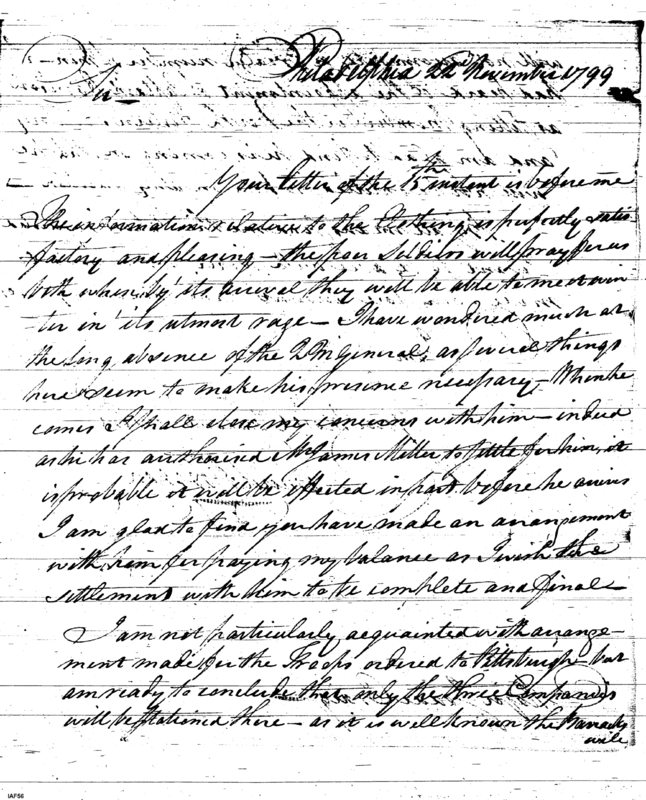 Philadelphia 22 November 1799
Sir
Your letter of the 15th instant is before me
The information relative to the Clothing is perfectly satis
factory and pleasing – the poor Soldiers will pray for us
both when by its arrival they will be able to meet win
ter in its utmost rage – I have wondered much at
the long absence of the Q M General, as several things
here seem to make his presence necessary – When he
comes I shall close my concerns with him – indeed
as he has authorised Mr James Miller to settle for him, it
is probable it will be effected in part before he arrives
I am glad to find you have made an arrangement
with him for paying my balance as I wish the
settlement with him to be complete and final –
I am not particularly acquainted with arrange-
ment made for the Troops ordered to Pittsburgh – but
am ready to conclude that only the three Companies
will be stationed there – as it is well known the Barracks
will
IAF56